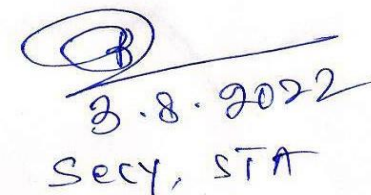 3.8.2022
Secy, STA